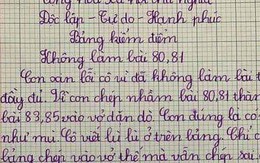 Cộng hòa xã hội chủ nghĩa
Độc lập - Tự do - Hạnh phúc
Bảng kiểm điểm
Không làm bài 80,81
Con xin lỗi cô vì đã không làm bài t
đầy đủ. Vì con chép nhầm bài 80,81 thàn
bài 83,85 vào vở dặn dò. Con đúng là có
như mù Cô viết lù lù ở trên bảng. Chỉ c
bảng chép vào vở thế mà vẫn chép sai